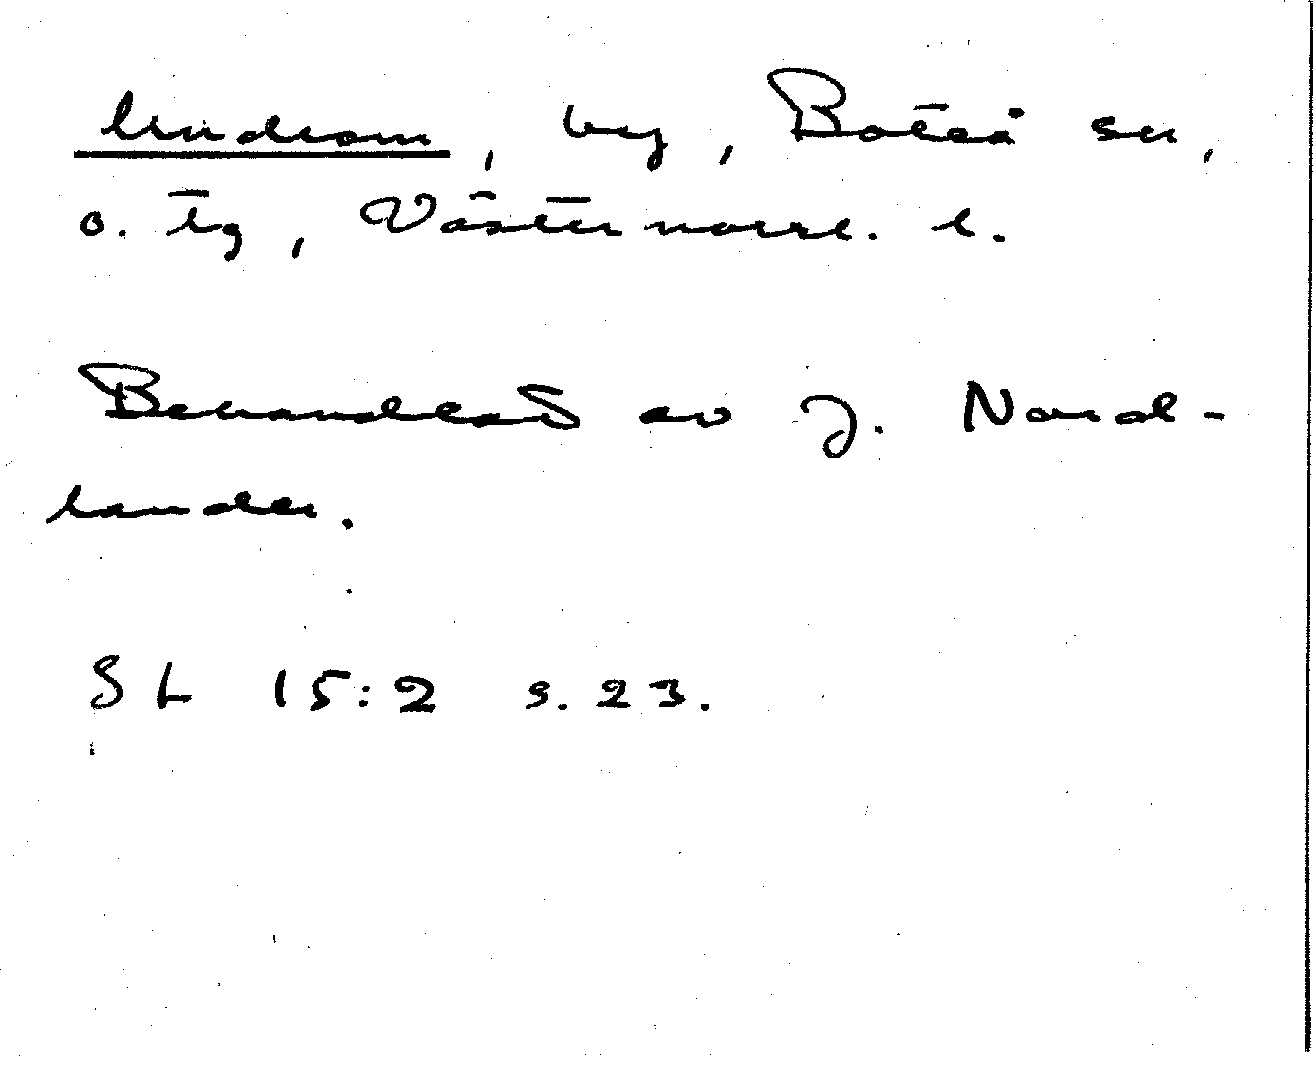 Undrom, by, Boteå sn,
o. tg, Västernorrl. l.
Behandlad av J. Nord-
lander.
SL 15:2 s. 23.